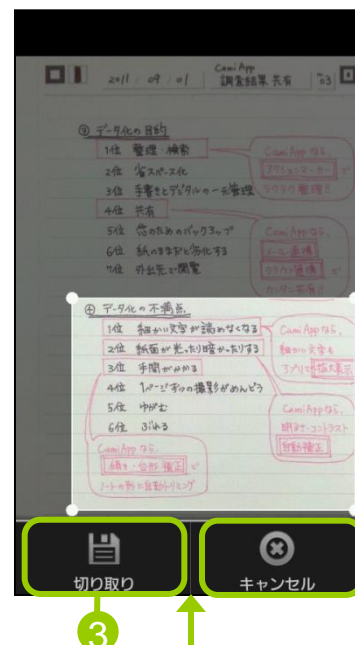 CamiApp
2011 / 09 / 01 調査結果 共有 03
③ データ化の目的
1位 整理・検索
2位 省スペース化
3位 手書きとデジタルの一元管理
4位 共有
5位 念のためのバックアップ
6位 紙のままだと劣化する
7位 外出先で閲覧
CamiAppなら、
アクションマーカー で
ラクラク整理!!
CamiAppなら、
メール連携
クラウド連携 で
カンタン共有!!
④ データ化の不満点
1位 細かい文字が読めなくなる
2位 紙面が光ったり暗かったりする
3位 手間がかかる
4位 1ページずつの撮影がめんどう
5位 ゆがむ
6位 ぶれる
CamiAppなら、
細かい文字も
アプリで拡大表示
CamiAppなら、
明るさ・コントラスト
自動補正
CamiAppなら、
傾き・台形 補正 で
ノートの形に自動トリミング
切り取り
キャンセル
3